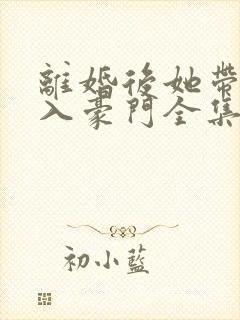 離婚後她帶
入豪門全集
初小藍